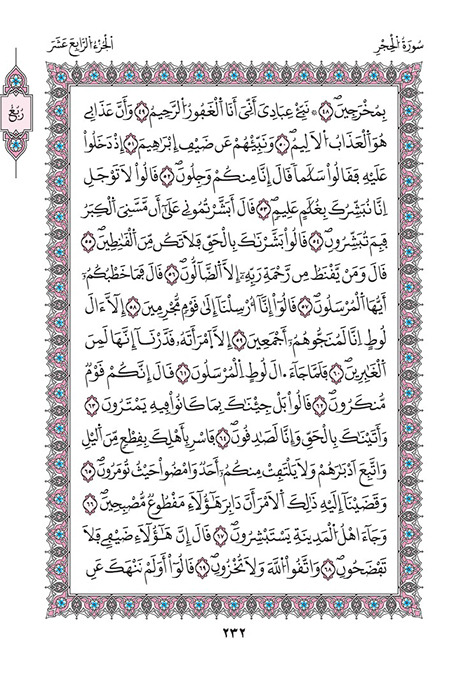 سُورَةُ الْحِجْرِ
الْجُزْءُ الرَّابِعَ عَشَرَ
رُبُعْ
بِمُخْرَجِينَ ٤٨ ۞ نَبِّےْ عِبَادِيَ أَنِّيَ أَنَا اَ۬لْغَفُورُ اُ۬لرَّحِيمُ ٤٩ وَأَنَّ عَذَابِے
هُوَ اَ۬لْعَذَابُ اُ۬لَالِيمُ ٥٠ وَنَبِّئْهُمْ عَن ضَيْفِ إِبْرَٰهِيمَ ٥١ إِذْ دَخَلُواْ
عَلَيْهِ فَقَالُواْ سَلَٰماٗ قَالَ إِنَّا مِنكُمْ وَجِلُونَ ٥٢ قَالُواْ لَا تَوْجَلِ
اِنَّا نُبَشِّرُكَ بِغُلَٰمٍ عَلِيمٖ ٥٣ قَالَ أَبَشَّرْتُمُونِے عَلَىٰٓ أَن مَّسَّنِيَ اَ۬لْكِبَرُ
فَبِمَ تُبَشِّرُونِ ٥٤ قَالُواْ بَشَّرْنَٰكَ بِالْحَقِّ فَلَا تَكُن مِّنَ اَ۬لْقَٰنِطِينَ ٥٥
قَالَ وَمَنْ يَّقْنَطُ مِن رَّحْمَةِ رَبِّهِۦٓ إِلَّا اَ۬لضَّآلُّونَ ٥٦ قَالَ فَمَا خَطْبُكُمُۥٓ
أَيُّهَا اَ۬لْمُرْسَلُونَ ٥٧ قَالُوٓاْ إِنَّآ أُرْسِلْنَآ إِلَىٰ قَوْمٖ مُّجْرِمِينَ ٥٨ إِلَّآ ءَالَ
لُوطٍ اِنَّا لَمُنَجُّوهُمُۥٓ أَجْمَعِينَ ٥٩ إِلَّا اَ۪مْرَأَتَهُۥ قَدَّرْنَآ إِنَّهَا لَمِنَ
اَ۬لْغَٰبِرِينَ ٦٠ فَلَمَّا جَآءَ اٰلَ لُوطٍ اِ۬لْمُرْسَلُونَ ٦١ قَالَ إِنَّكُمْ قَوْمٞ
مُّنكَرُونَ ٦٢ قَالُواْ بَلْ جِئْنَٰكَ بِمَا كَانُواْ فِيهِ يَمْتَرُونَ ٦٣
وَأَتَيْنَٰكَ بِالْحَقِّ وَإِنَّا لَصَٰدِقُونَ ٦٤ فَاسْرِ بِأَهْلِكَ بِقِطْعٖ مِّنَ اَ۬ليْلِ
وَاتَّبِعَ اَدْبَٰرَهُمْ وَلَا يَلْتَفِتْ مِنكُمُۥٓ أَحَدٞ وَامْضُواْ حَيْثُ تُومَرُونَ ٦٥
وَقَضَيْنَآ إِلَيْهِ ذَٰلِكَ اَ۬لَامْرَ أَنَّ دَابِرَ هَٰٓؤُلَآءِ مَقْطُوعٞ مُّصْبِحِينَ ٦٦
وَجَآءَ اهْلُ اُ۬لْمَدِينَةِ يَسْتَبْشِرُونَ ٦٧ قَالَ إِنَّ هَٰٓؤُلَآءِ ضَيْفِے فَلَا
تَفْضَحُونِ ٦٨ وَاتَّقُواْ اُ۬للَّهَ وَلَا تُخْزُونِ ٦٩ قَالُوٓاْ أَوَلَمْ نَنْهَكَ عَنِ
٢٣٢